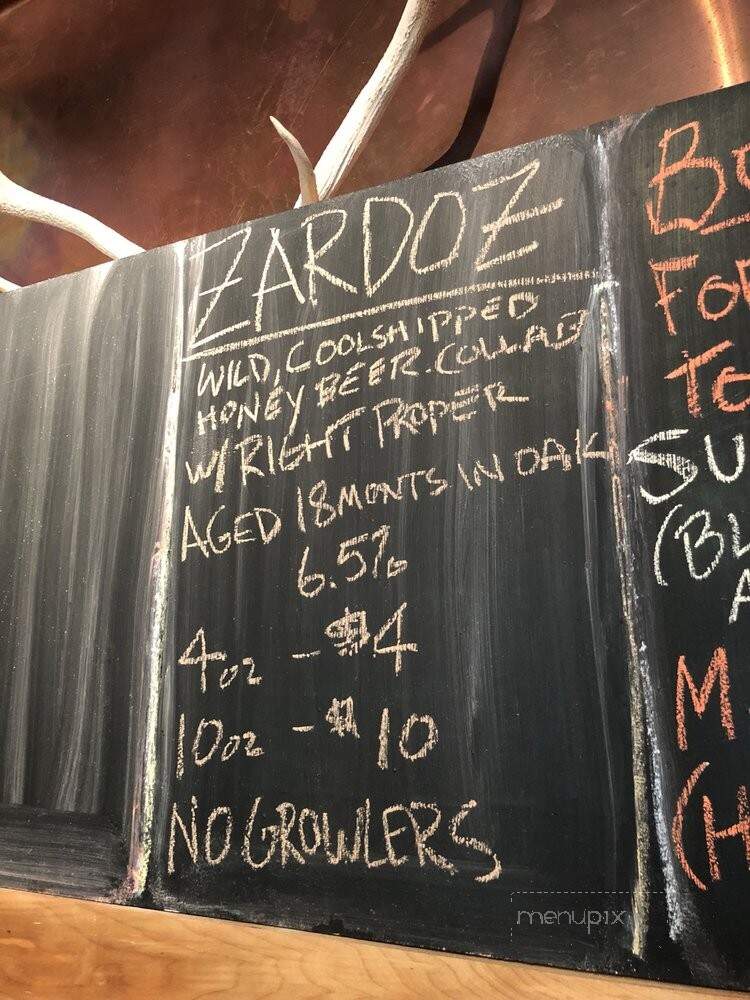 ZARDOZ
WILD, COOLSHIPPED
HONEY BEER. COLLAB
W/ RIGHT PROPER
AGED 18 MONTS IN OAK
6.5%
4oz - $4
10oz - $10
NO GROWLERS
SU
(BL
A
M
(H
menupix